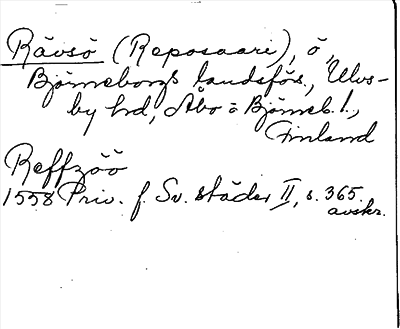 Rävsö (Reposaari), ö,
Björneborgs landsförs., Ulvs-
by hd, Åbo o Björneb. l.,
Finland
Reffzöö
1558 Priv. f. Sv. städer II, s. 365.
avskr.